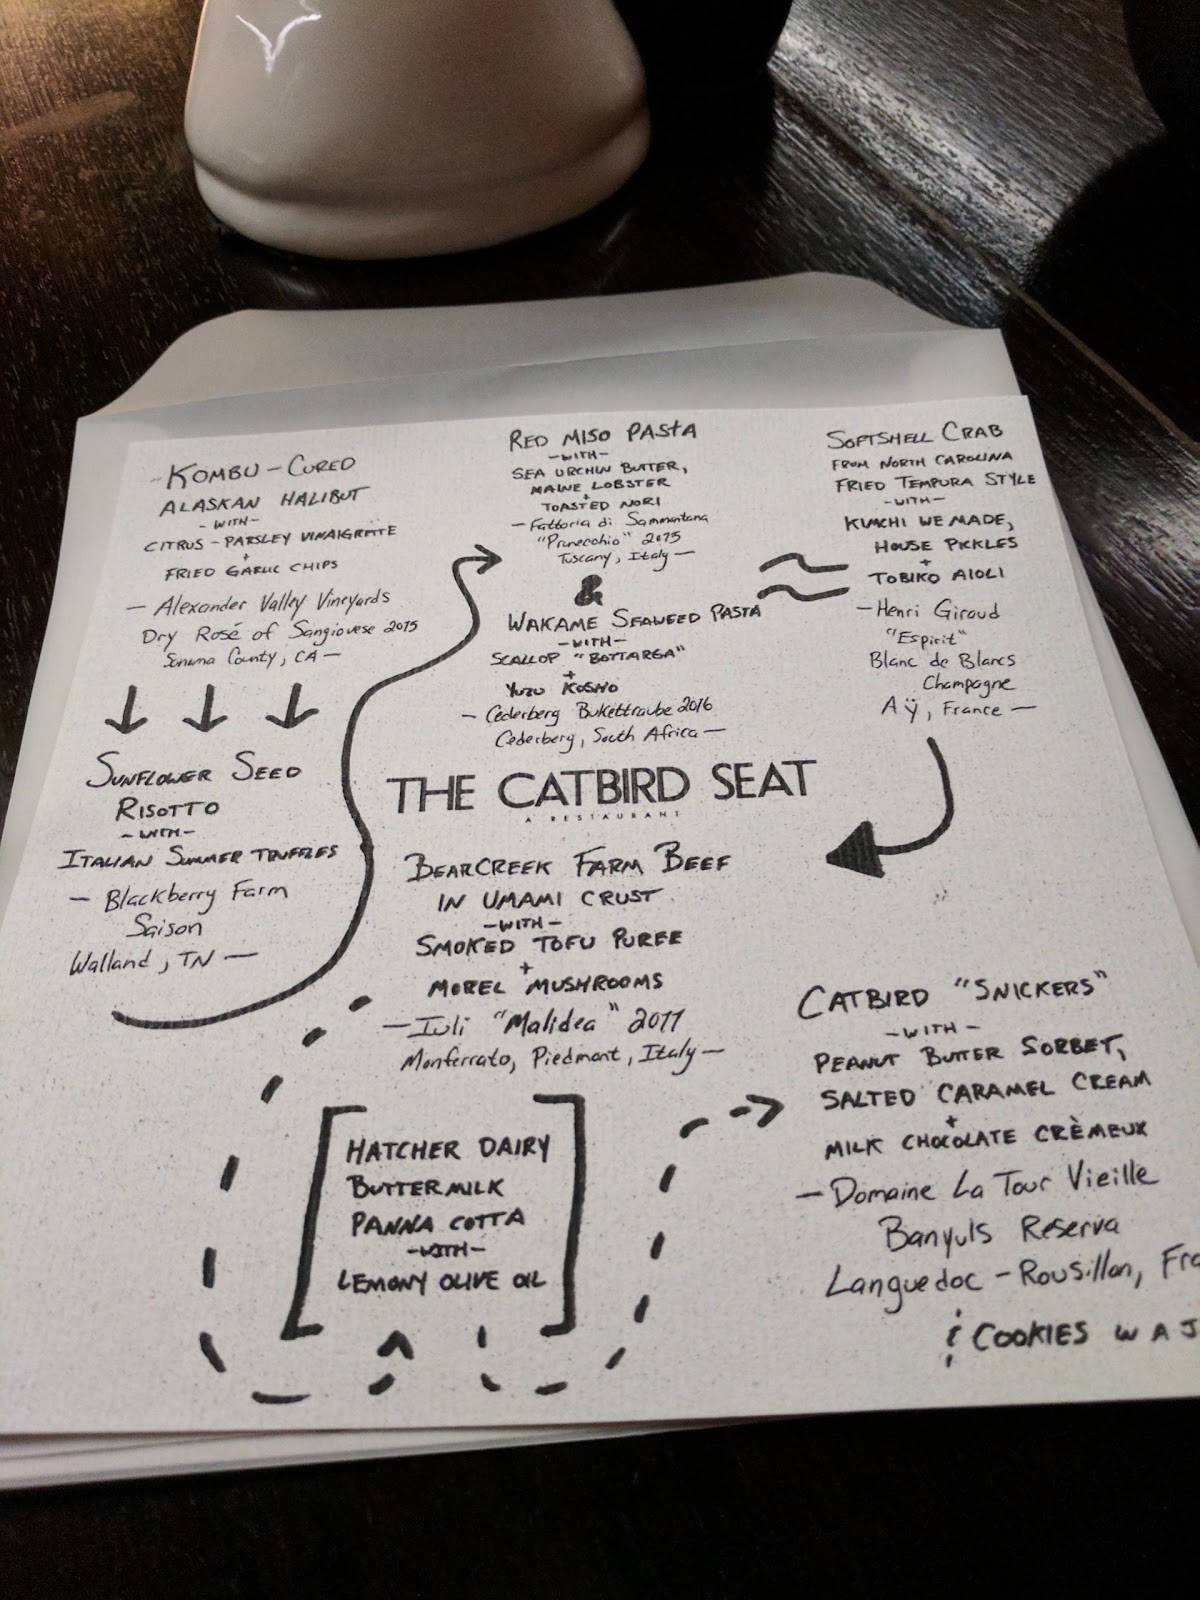 KOMBU-CURED
ALASKAN HALIBUT
-WITH-
CITRUS-PARSLEY VINAIGRETTE
+
FRIED GARLIC CHIPS
- Alexander Valley Vineyards
Dry Rosé of Sangiovese 2015
Sonoma County, CA -
SUNFLOWER SEED
RISOTTO
-WITH-
ITALIAN SUMMER TRUFFLES
- Blackberry Farm
Saison
Walland, TN -
RED MISO PASTA
-WITH-
SEA URCHIN BUTTER,
MAINE LOBSTER
+
TOASTED NORI
- Fattoria di Sammontana
"Primecchio" 2015
Tuscany, Italy -
&
WAKAME SEAWEED PASTA
-WITH-
SCALLOP "BOTTARGA"
+
YUZU KOSHO
- Cederberg Bukettraube 2016
Cederberg, South Africa -
SOFTSHELL CRAB
FROM NORTH CAROLINA
FRIED TEMPURA STYLE
-WITH-
KIMCHI WE MADE,
HOUSE PICKLES
+
TOBIKO AIOLI
- Henri Giraud
"Espirit"
Blanc de Blancs
Champagne
Aÿ, France -
THE CATBIRD SEAT
A RESTAURANT
BEARCREEK FARM BEEF
IN UMAMI CRUST
-WITH-
SMOKED TOFU PUREE
+
MOREL MUSHROOMS
- Iuli "Malidea" 2011
Monferrato, Piedmont, Italy -
HATCHER DAIRY
BUTTERMILK
PANNA COTTA
-WITH-
LEMONY OLIVE OIL
CATBIRD "SNICKERS"
-WITH-
PEANUT BUTTER SORBET,
SALTED CARAMEL CREAM
+
MILK CHOCOLATE CRÈMEUX
- Domaine La Tour Vieille
Banyuls Reserva
Languedoc-Rousillon, Fra
& COOKIES W A J